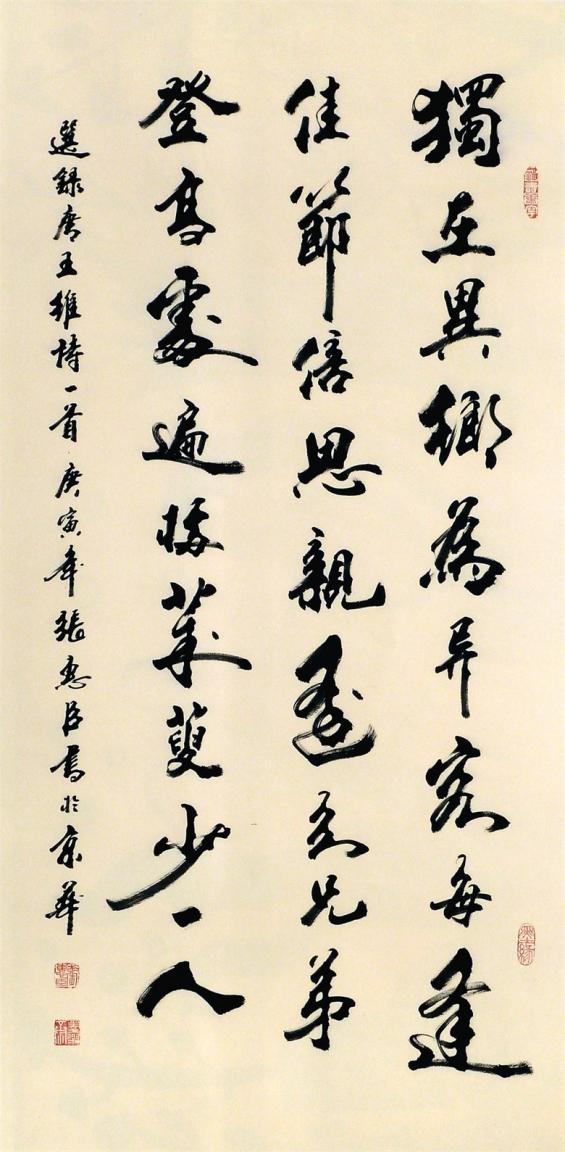 獨在異鄉為异客每逢
佳節倍思親遙知兄弟
登高處遍插茱萸少一人
選録唐王維詩一首庚寅年張惠臣書於京華